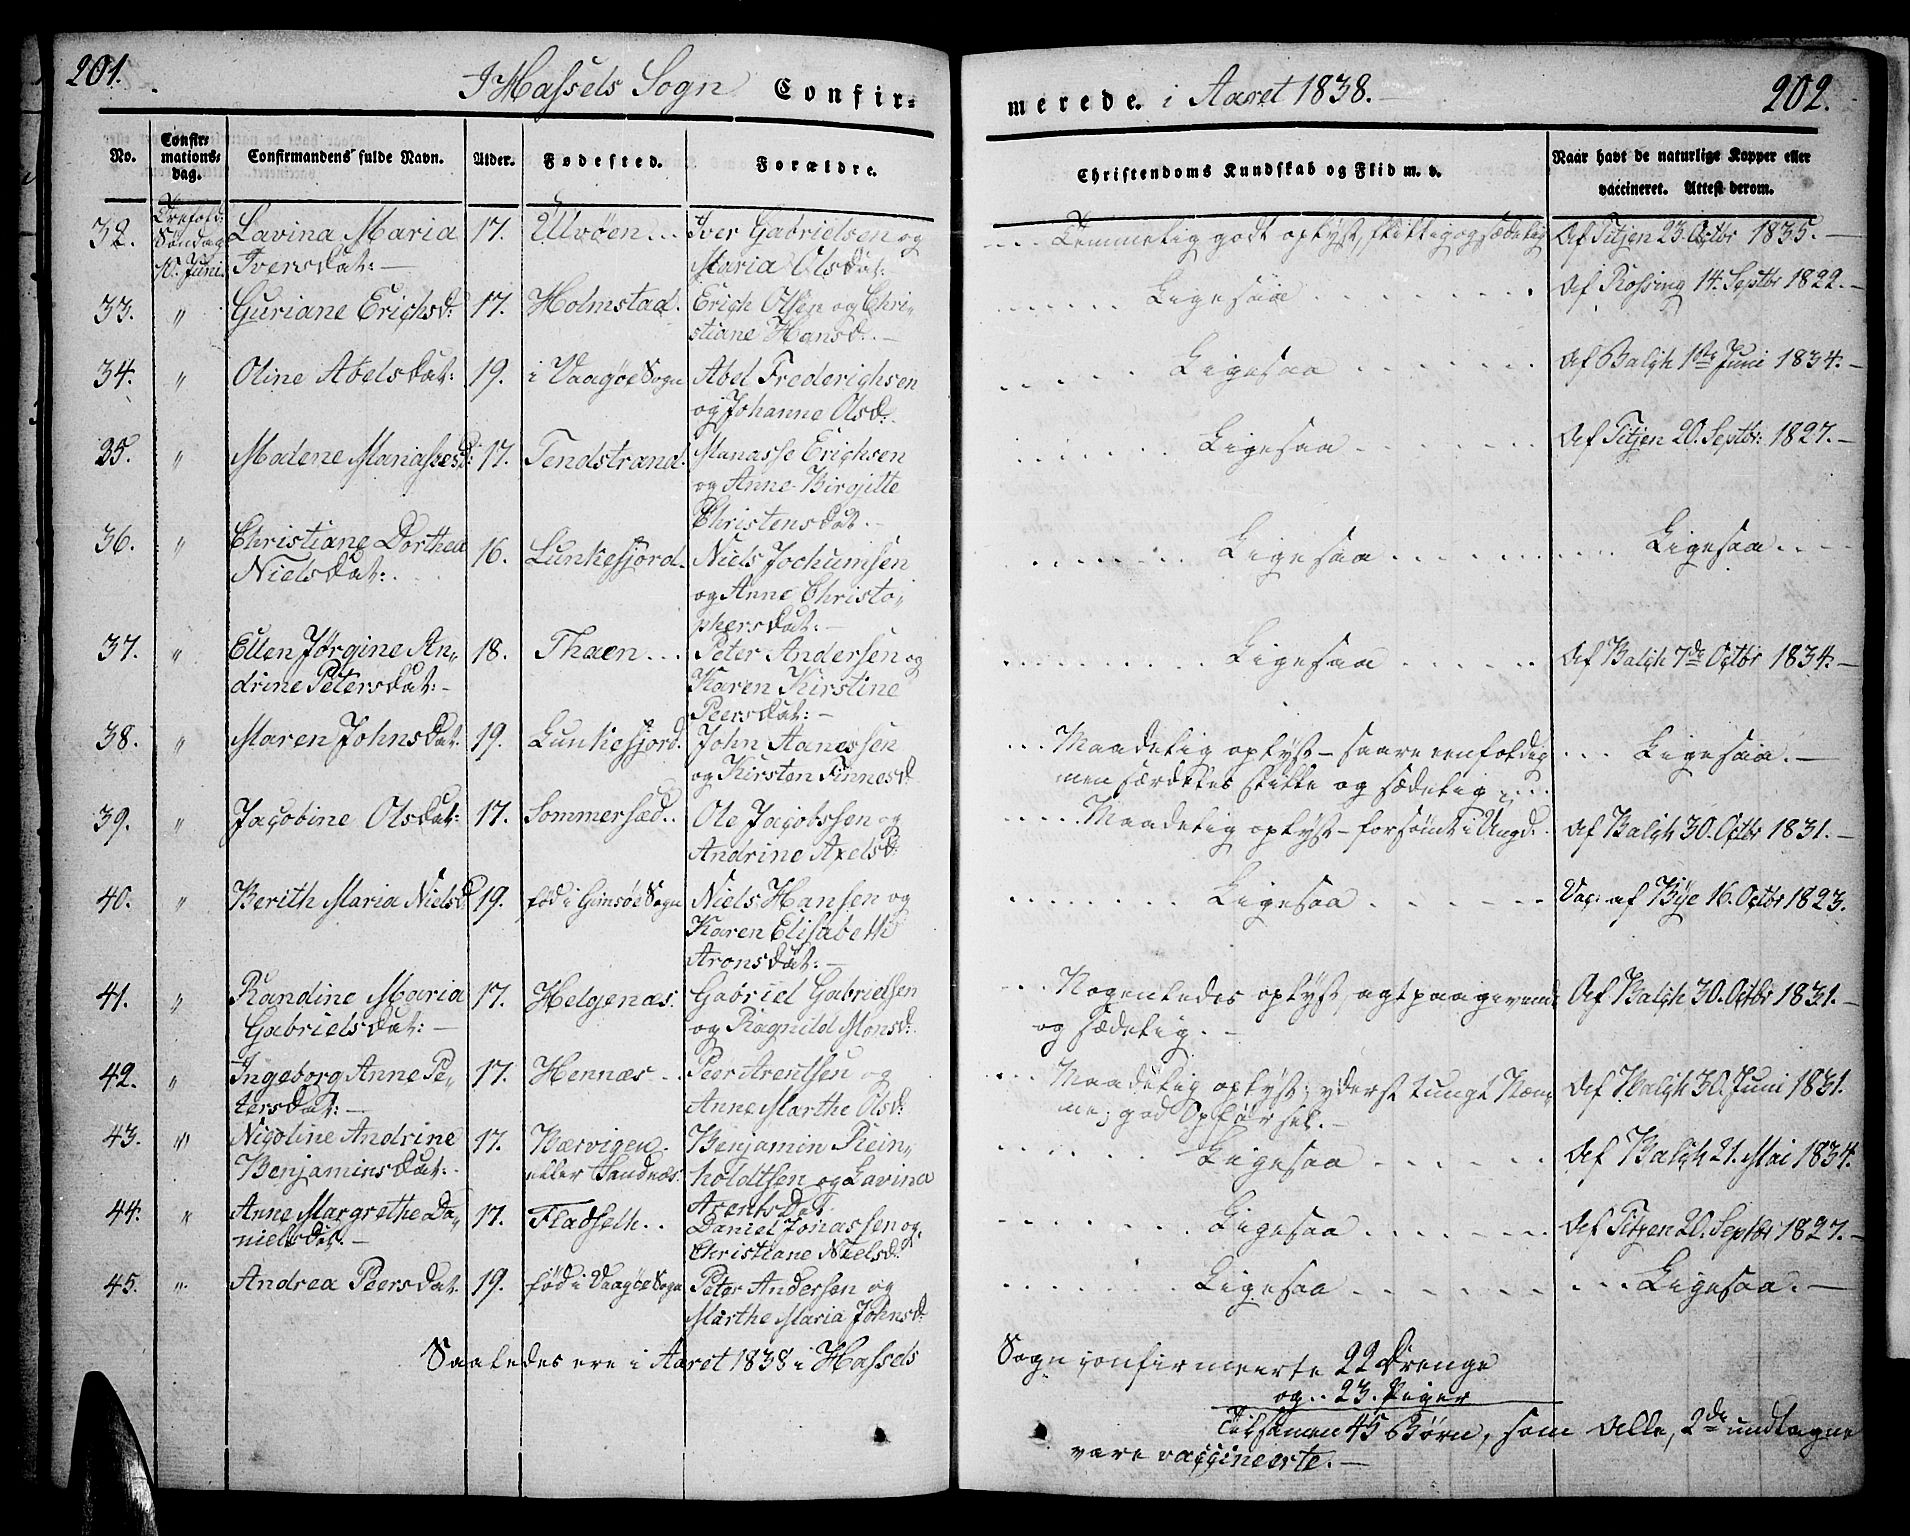 201.
I Hassels Sogn Confir-
merede. i Aaret 1838.
202.
No.
Confir-
mations-
dag.
Confirmandens fulde Navn.
Alder.
Fødested.
Forældre.
Christendoms Kundskab og Flid m. v.
Naar havt de naturlige Kopper eller
vaccineret. Attest derom.
32.
Trefold:
Søndag
10. Juni.
Lavina Maria
Iversdat: —
17.
Ulvøen...
Iver Gabrielsen og
Maria Olsdat:
Temmelig godt oplyst, flittig og sædelig
Af Titjen 23. Octbr 1835. —
33.
"
Guriane Erichsd:
17.
Holmstad.
Erich Olsen og Chri-
stiane Hansd: —
Ligesaa
Af Rossing 14. Septbr 1822. —
34.
"
Oline Abelsdat:
19.
i Vaagøe Sogn
Abel Frederichsen
og Johanne Olsd:
Ligesaa
Af Balch 1ste Juni 1834. —
35.
"
Madene Manassesd:
17.
Tendstrand.
Manasse Erichsen
og Anne Birgitte
Christensdat. —
Ligesaa
Af Titjen 20. Septbr: 1827. —
36.
"
Christiane Dorthea
Nielsdat:
16.
Lunkefjord.
Niels Jochumsen
og Anne Christo-
phersdat: —
Ligesaa
Ligesaa
37.
"
Ellen Jørgine An-
drine Petersdat: —
18.
Thaen...
Peter Andersen og
Karen Kirstine
Peersdat: —
Ligesaa
Af Balch 7de Octbr 1834. —
38.
"
Maren Johnsdat.
19.
Lunkefjord.
John Aanessen
og Kirsten Finnesd.
Maadelig oplyst — saare eenfoldig
men særdeles stille og sædelig
Ligesaa. —
39.
"
Jacobine Olsdat:
17.
Sommersæd..
Ole Jacobssen og
Andrine Axelsd:
Maadelig oplyst — forsømt i Ungd.
Af Balch 30. Octbr 1831. —
40.
"
Berith Maria Nielsd
19.
fød i Gimsøe Sogn
Niels Hansen og
Karen Elisabeth
Aronsdat: —
Ligesaa
Vac: af Bye 16. Octbr 1823.
41.
"
Randine Maria
Gabrielsdat: —
17.
Helgenæs.
Gabriel Gabrielsen
og Ragnild Monsd:
Nogenledes oplyst, agtpaagivende
og sædelig. —
Af Balch 30. Octbr 1831. —
42.
"
Ingeborg Anne Pe-
tersdat: —
17.
Hennæs..
Peer Arentsen og
Anne Marthe Olsd:
Maadelig oplyst; yderst tungt Nem-
me; god Opførsel. —
Af Balch 30. Juni 1831.
43.
"
Nicoline Andrine
Benjaminsdat:
17.
Værvigen
eller Sandnes.
Benjamin Rein-
holdtsen og Lavina
Arentsdat
Ligesaa
Af Balch 21. Mai 1834.
44.
"
Anne Margrethe Da-
nielsdat. —
17.
Fladseth..
Daniel Jonassen og
Christiane Nielsd:
Ligesaa
Af Titjen 20. Septbr 1827. —
45.
"
Andrea Peersdat.
19.
fød i Vaagøe Sogn
Peter Andersen og
Marthe Maria Johnsd:
Ligesaa
Ligesaa. —
Saaledes ere i Aaret 1838 i Hassels
Sogn confirmeerte 22 Drenge
og.. 23. Piger
Tilsamen 45 Børn, som Alle, 2de undtagne
vare vaccineerte. —